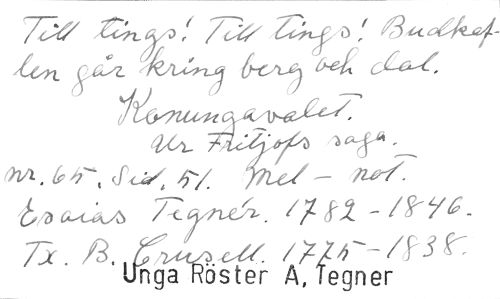 Till tings! Till tings! Budkaf-
len går kring berg och dal.
Konungavalet.
Ur Fritjofs saga.
nr. 65. Sid. 51. Mel – not.
Esaias Tegnér. 1782 – 1846.
Tx. B. Crusell. 1775 – 1838.
Unga Röster A, Tegner